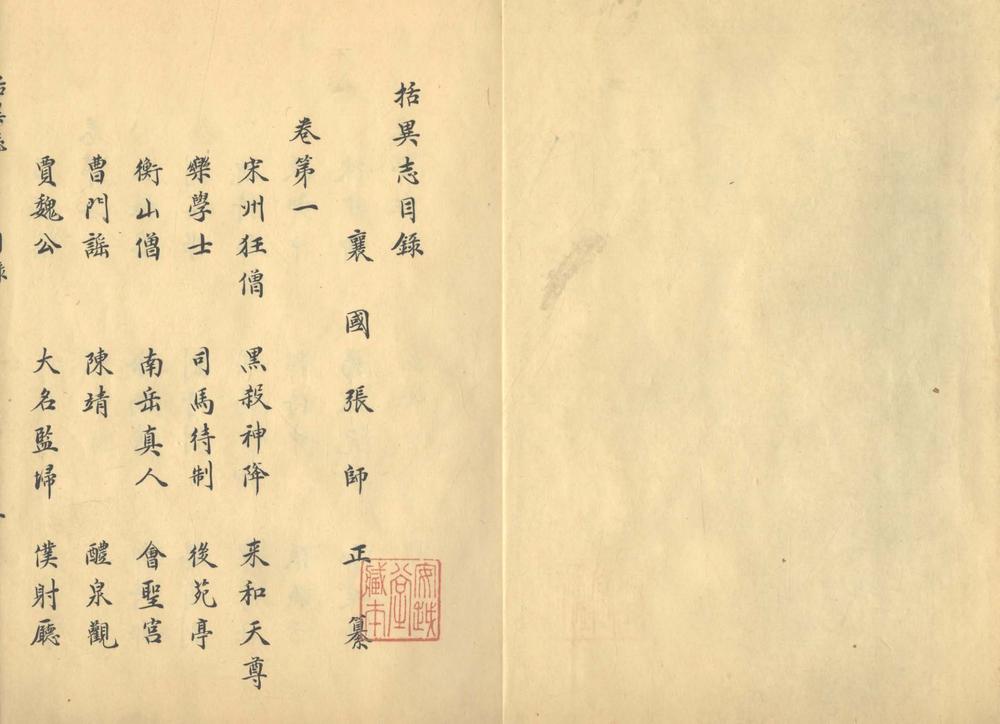 括異志目錄
襄國張師正纂
卷第一
宋州狂僧 黑殺神降 来和天尊
樂學士 司馬待制 後苑亭
衡山僧 南岳真人 會聖宮
曹門謡 陳靖 醴泉觀
賈魏公 大名監埽 僕射廳
安越堂藏本